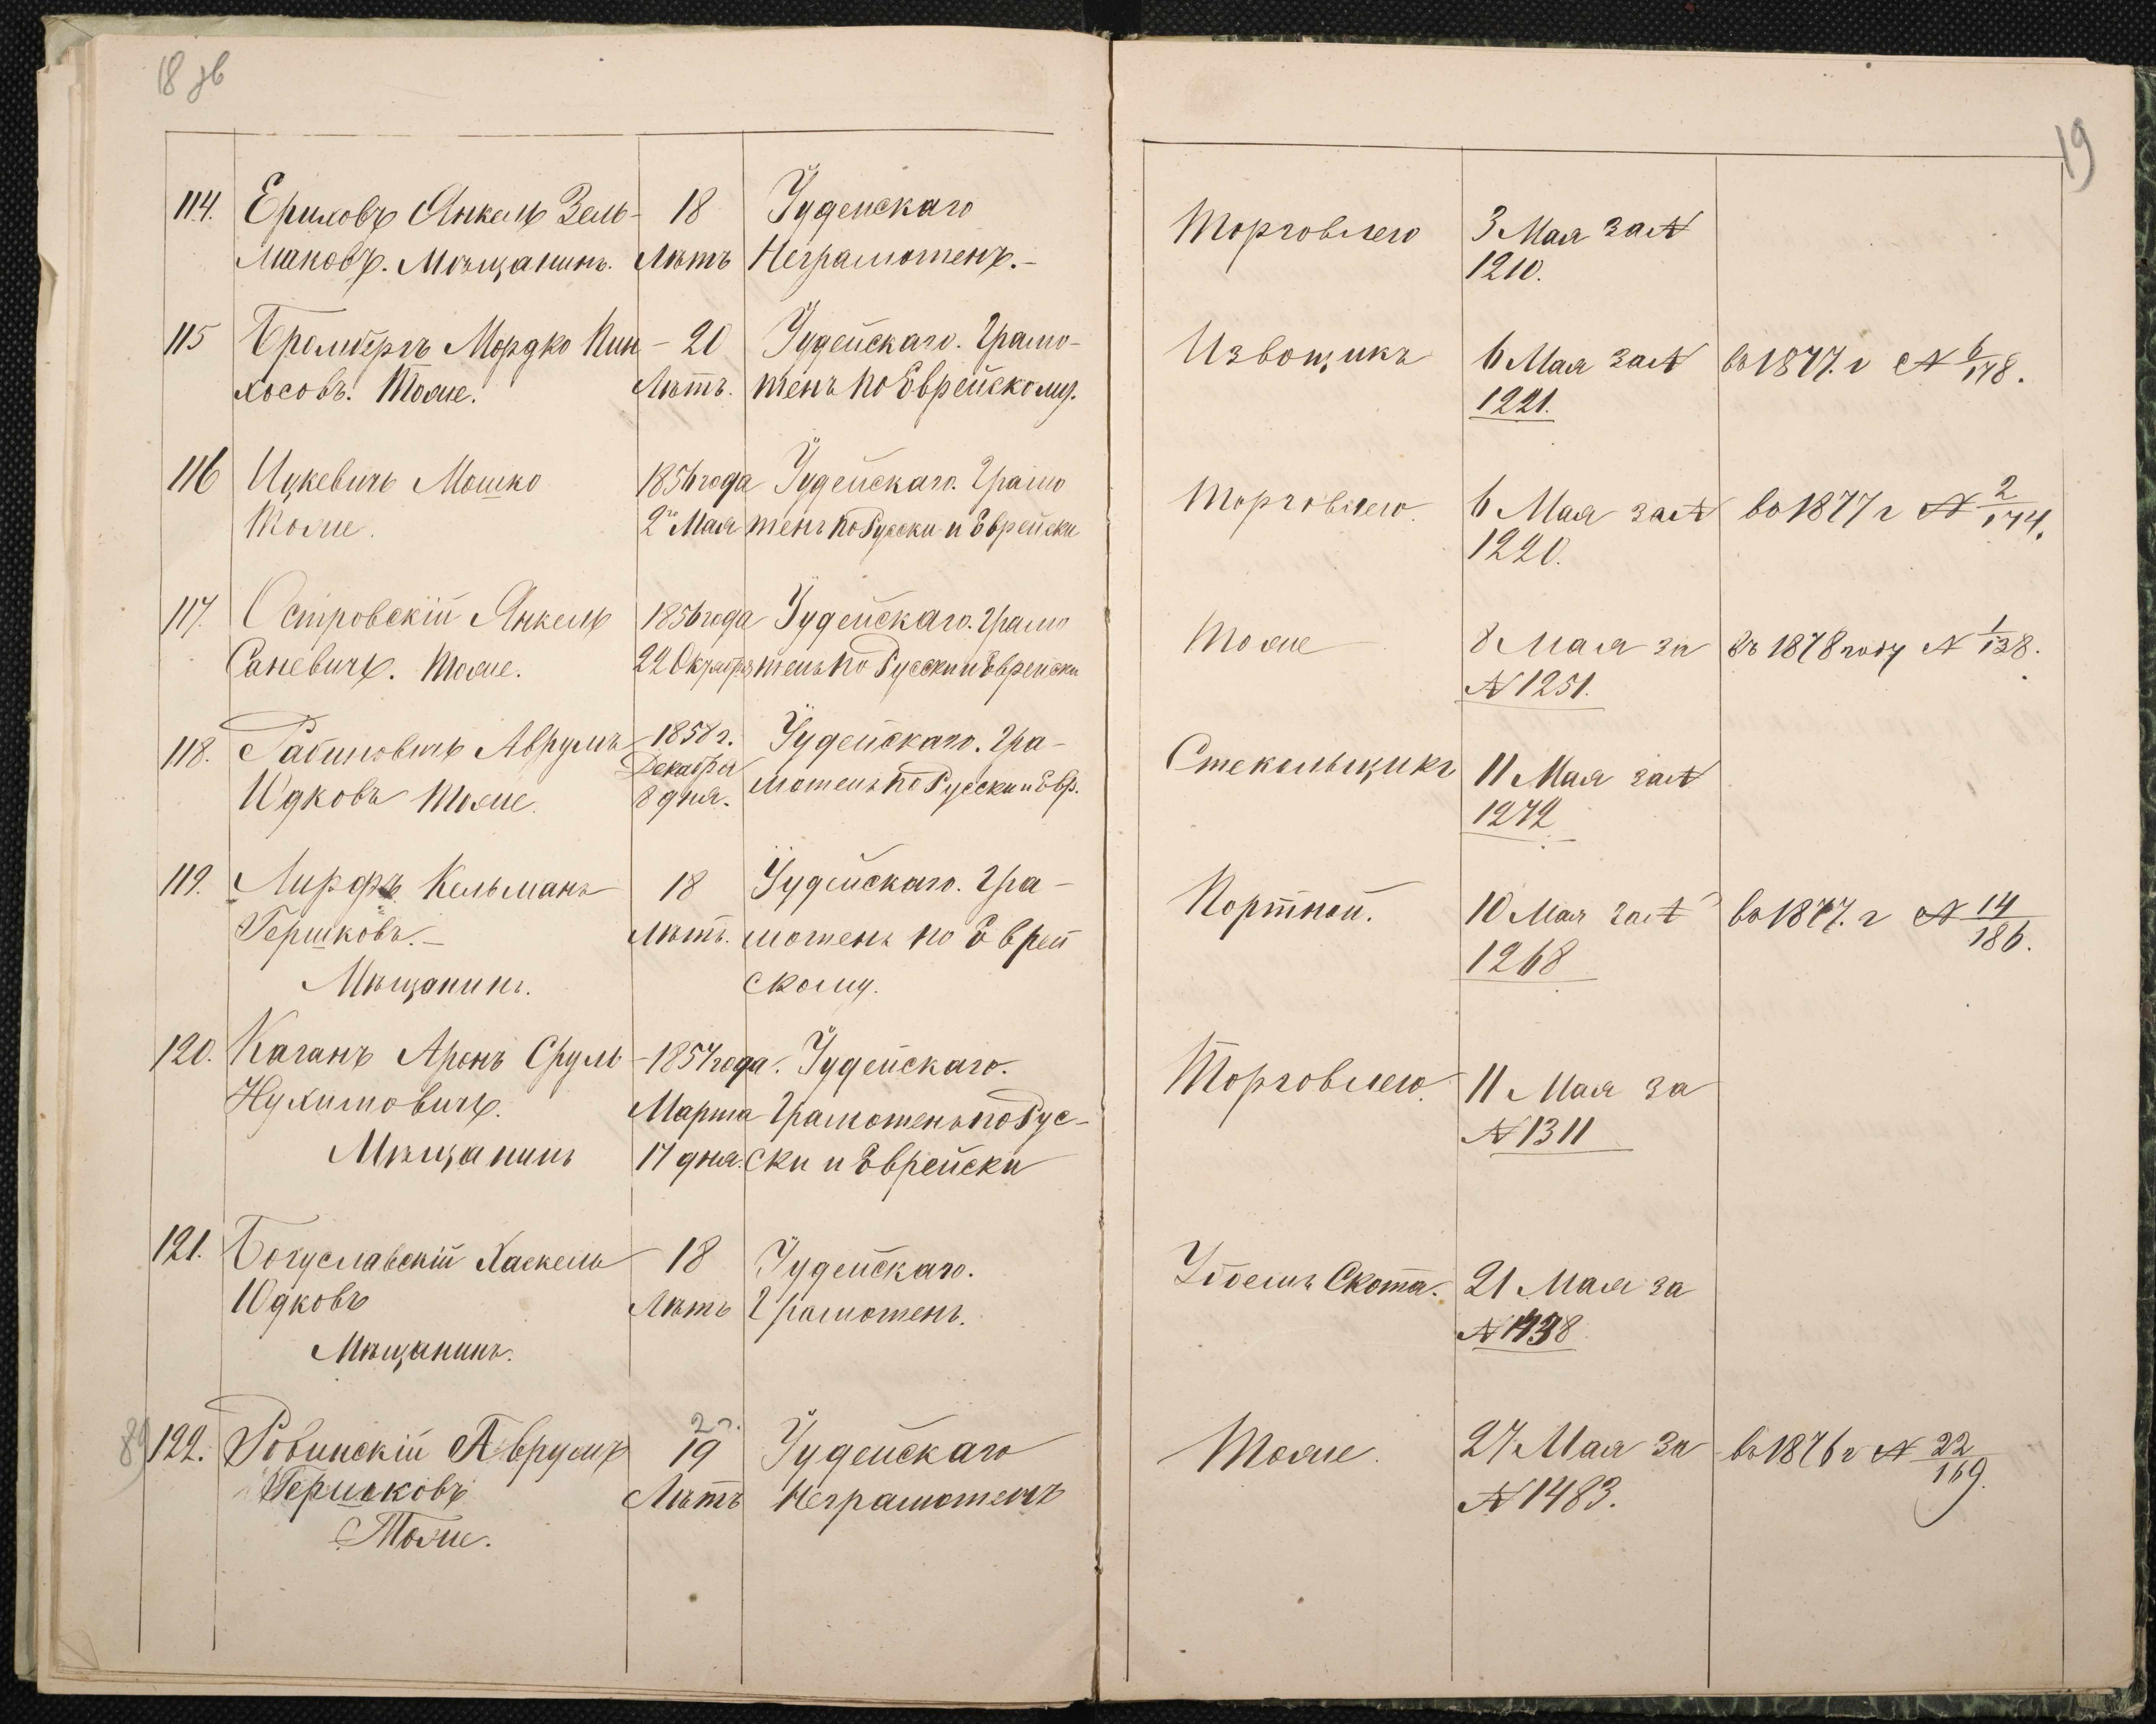 18 зв
19
114. Ериховъ Янкель Зель- 18 Іудейскаго Торговлею 3 Мая за №
мановъ. Мѣщанинъ. Лѣтъ Неграмотенъ.- 1210.
115 Бромбергъ Мордко Пин- 20 Іудейскаго. Грамо- Извощикъ 6 Мая за № въ 1877. г № 6/178.
хосовъ. Тоже. Лѣтъ. тенъ по Еврейскому. 1221.
116 Ицкевичъ Мошко 1856 года Іудейскаго. Грамо Торговлею. 6 Мая за № во 1877 г № 2/174.
Тоже. 2го Мая тенъ по Русски и Еврейски 1220.
117. Островскій Янкель 1856 года Іудейскаго. Грамо Тоже 8 Мая за въ 1878 году № 1/138.
Саневичъ. Тоже. 22 Октября тенъ по Русски и Еврейски № 1251.
118. Рабиновичъ Аврумъ 1857 г. Іудейскаго. Гра- Стекольщикъ 11 Мая за №
Декабря
Юдковъ Тоже. 8 дня. мотенъ по Русски и Евр. 1272
119. Кельманъ 18 Іудейскаго. Гра- Портной. 10 Мая за № во 1877. г № 14/186.
Гершковъ.- Лѣтъ. мотенъ по Еврей 1268
Мѣщанинъ. скому.
120. Каганъ Аронъ Сруль- 1857 года. Іудейскаго. Торговлею. 11 Мая за
Нухимовичъ. Марта Грамотенъ по Рус- № 1311
Мѣщанинъ 17 дня. ски и Еврейски
121. Богуславскій Хаскель 18 Іудейскаго. Убоемъ Скота. 21 Мая за
Юдковъ Лѣтъ Грамотенъ. №
Мѣщанинъ.
122. Ровинскій Аврумъ 19 Іудейскаго Тоже. 27 Мая за въ 1876 г № 22/169.
Гершковъ Лѣтъ Неграмотенъ № 1483.
Тоже.